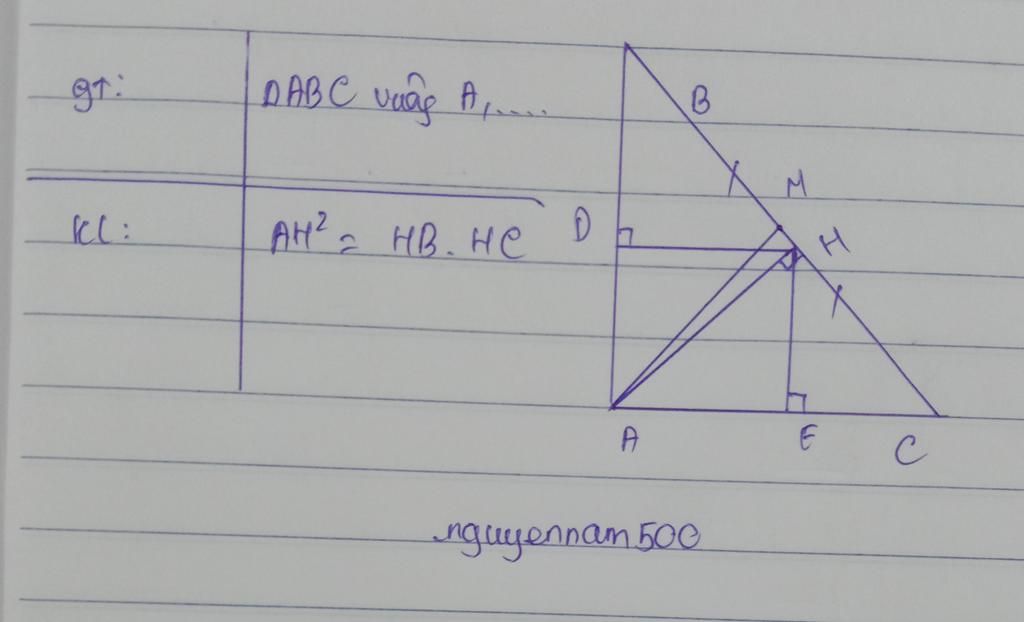 gt:
DABC vuông A,....
kl:
AH² = HB. HC
B
M
D
H
A
E
C
nguyennam500